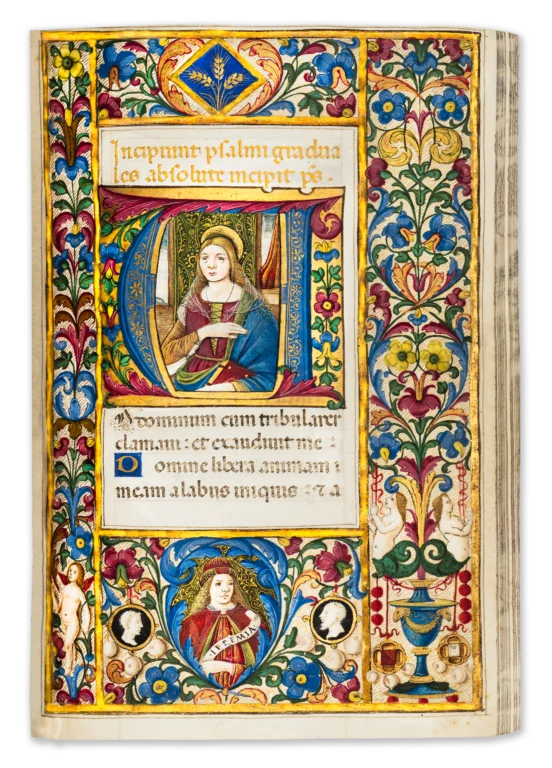 Incipiunt psalmi gradua
les absolute incipit p̄s .
AD dominum cum tribularer
clamaui : et exaudiuit me :
Domine libera animam
meam a labiis iniquis : ⁊ a
IEREMIA